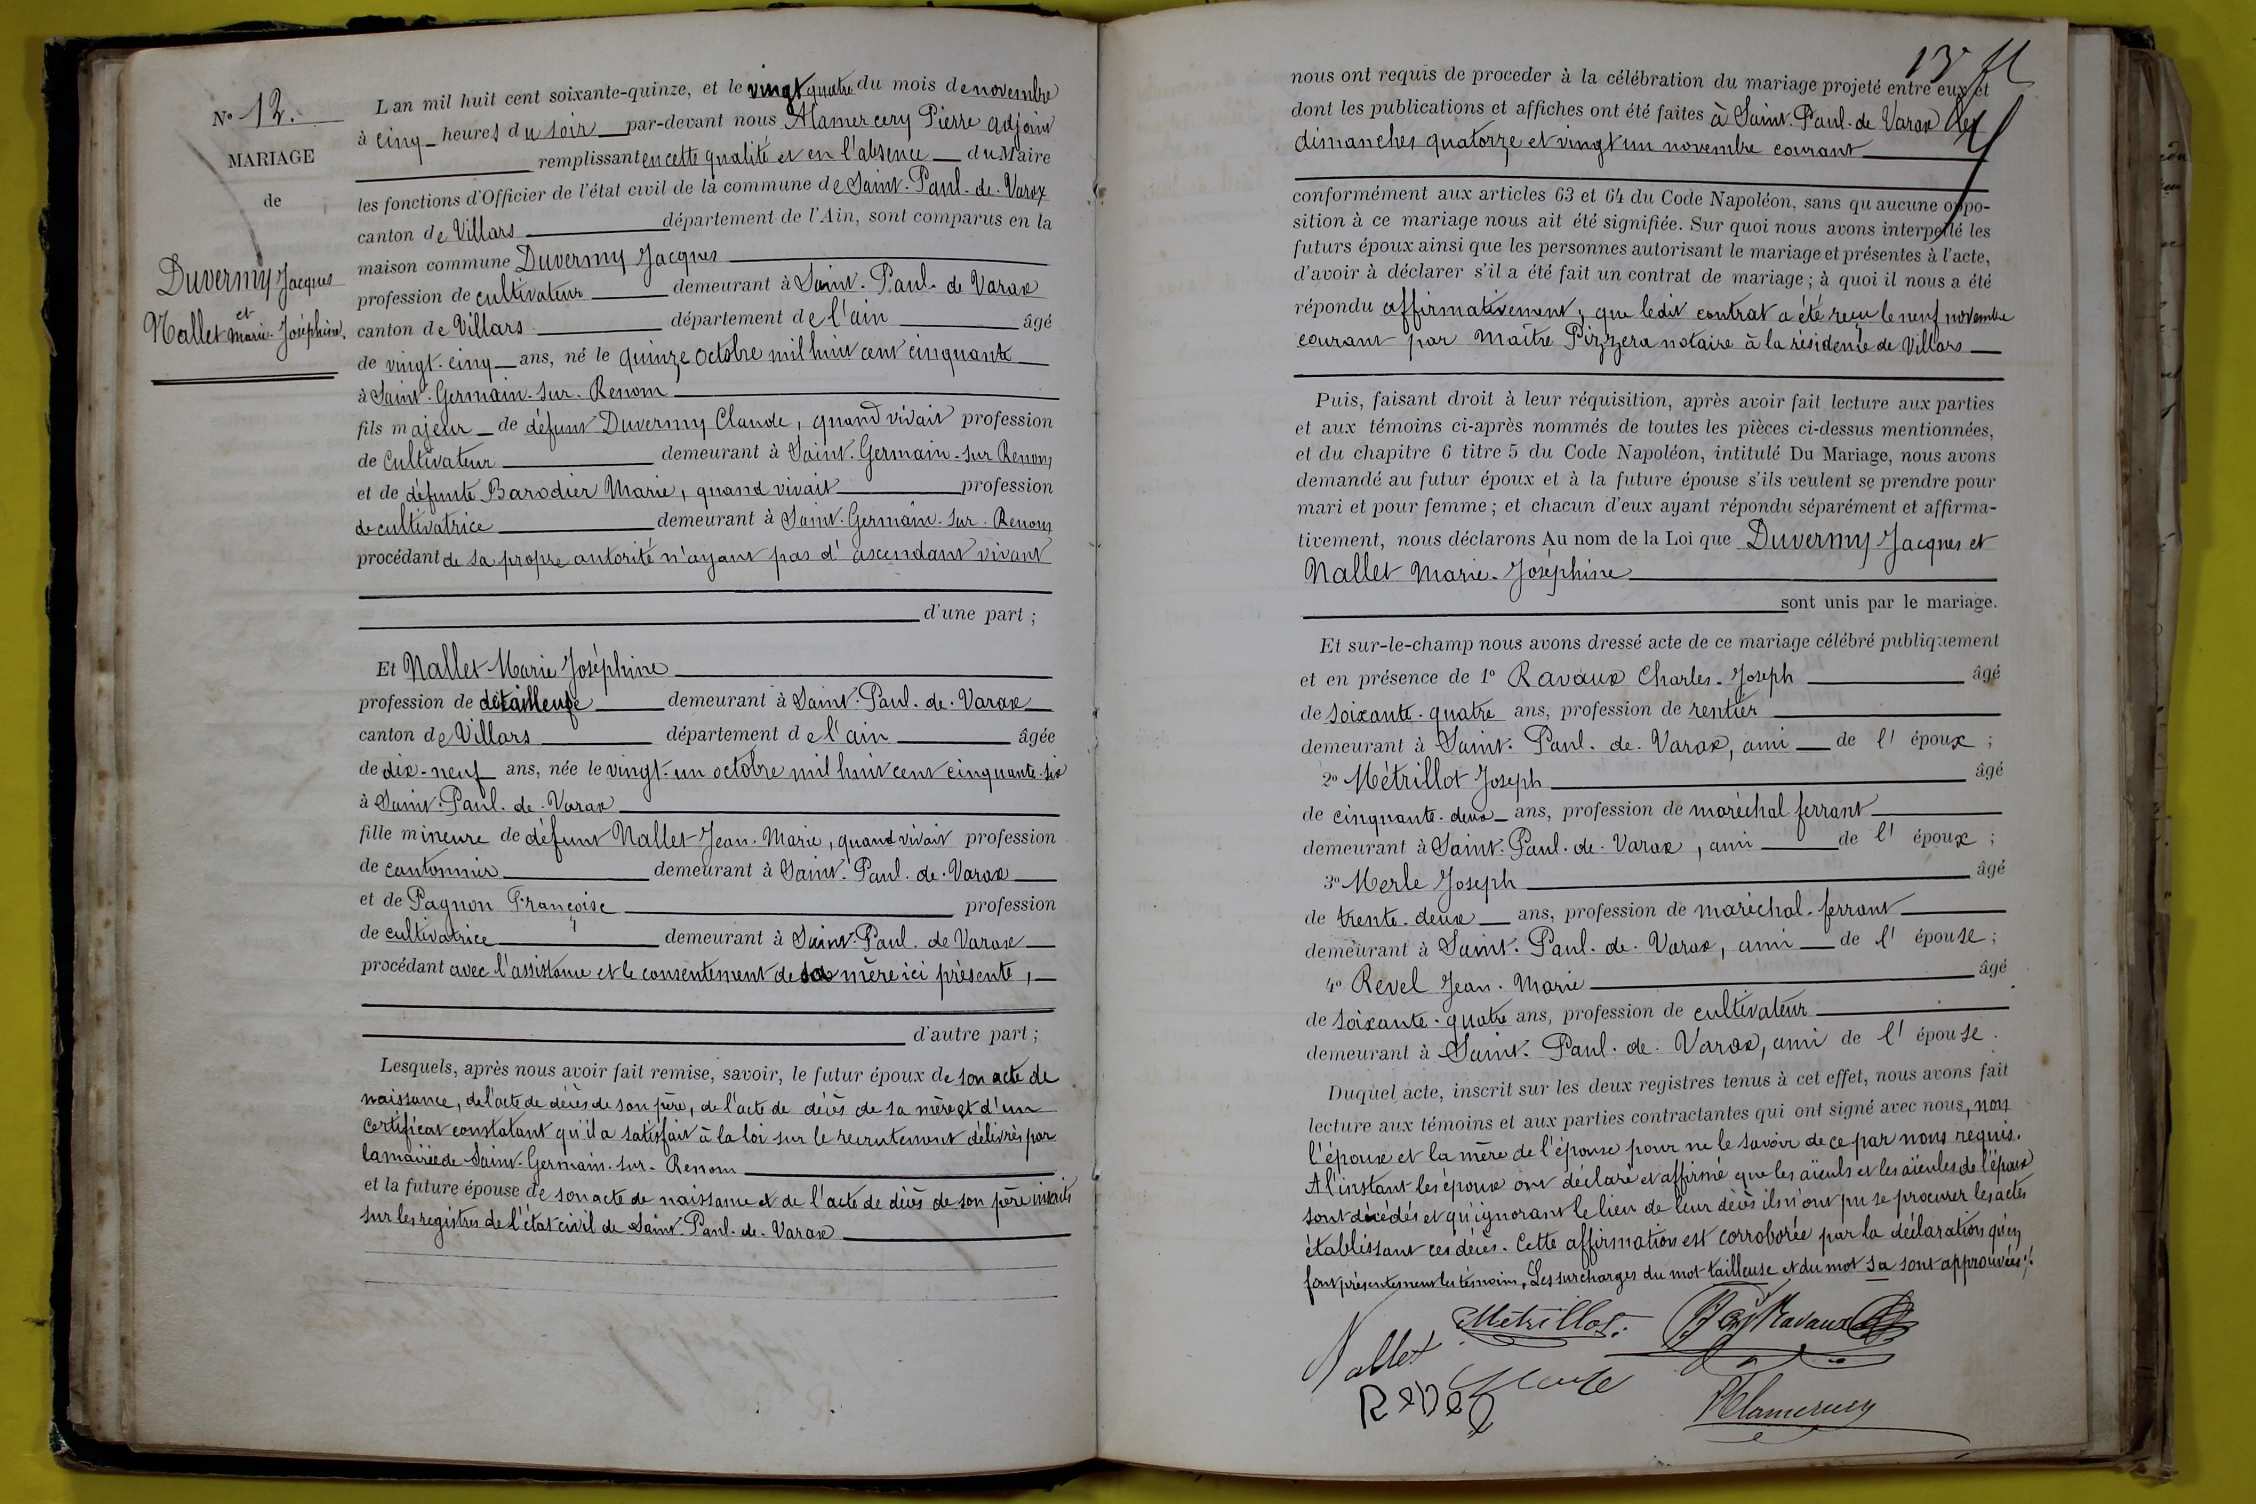 N° 12.
MARIAGE
de
Duvermy Jacques
et
Nallet Marie-Joséphine.
L'an mil huit cent soixante-quinze, et le vingt quatre du mois de novembre
à cinq heures du soir par-devant nous Alamercery Pierre adjoint
remplissant en cette qualité et en l'absence du Maire
les fonctions d'Officier de l'état civil de la commune de Saint-Paul-de-Varax
canton de Villars département de l'Ain, sont comparus en la
maison commune Duvermy Jacques
profession de cultivateur demeurant à Saint-Paul-de Varax
canton de Villars département de l'ain âgé
de vingt-cinq ans, né le quinze octobre mil huit cent cinquante
à Saint-Germain-sur-Renom
fils majeur de défunt Duvermy Claude, quand vivait profession
de cultivateur demeurant à Saint-Germain-sur Renom,
et de défunte Barodier Marie, quand vivait profession
de cultivatrice demeurant à Saint-Germain-sur-Renom
procédant de sa propre autorité n'ayant pas d'ascendant vivant
d'une part ;
Et Nallet Marie Joséphine
profession de tailleuse demeurant à Saint-Paul-de-Varax
canton de Villars département de l'ain âgée
de dix-neuf ans, née le vingt-un octobre mil huit cent cinquante-six
à Saint-Paul-de-Varax
fille mineure de défunt Nallet Jean-Marie, quand vivait profession
de cantonnier demeurant à Saint-Paul-de-Varax
et de Pagnon Françoise profession
de cultivatrice demeurant à Saint-Paul-de Varax
procédant avec l'assistance et le consentement de sa mère ici présente,
d'autre part ;
Lesquels, après nous avoir fait remise, savoir, le futur époux de son acte de
naissance, de l'acte de décès de son père, de l'acte de décès de sa mère et d'un
certificat constatant qu'il a satisfait à la loi sur le recrutement délivrés par
la mairie de Saint-Germain-sur-Renom
et la future épouse de son acte de naissance et de l'acte de décès de son père inscrits
sur les registres de l'état civil de Saint-Paul-de-Varax
13
nous ont requis de proceder à la célébration du mariage projeté entre eux et
dont les publications et affiches ont été faites à Saint-Paul-de Varax les
dimanches quatorze et vingt un novembre courant
conformément aux articles 63 et 64 du Code Napoléon, sans qu'aucune oppo-
sition à ce mariage nous ait été signifiée. Sur quoi nous avons interpellé les
futurs époux ainsi que les personnes autorisant le mariage et présentes à l'acte,
d'avoir à déclarer s'il a été fait un contrat de mariage ; à quoi il nous a été
répondu affirmativement, que ledit contrat a été reçu le neuf novembre
courant par Maître Pizzera notaire à la résidence de Villars
Puis, faisant droit à leur réquisition, après avoir fait lecture aux parties
et aux témoins ci-après nommés de toutes les pièces ci-dessus mentionnées,
et du chapitre 6 titre 5 du Code Napoléon, intitulé Du Mariage, nous avons
demandé au futur époux et à la future épouse s'ils veulent se prendre pour
mari et pour femme ; et chacun d'eux ayant répondu séparément et affirma-
tivement, nous déclarons Au nom de la Loi que Duvermy Jacques et
Nallet Marie-Joséphine
sont unis par le mariage.
Et sur-le-champ nous avons dressé acte de ce mariage célébré publiquement
et en présence de 1° Ravaux Charles-Joseph âgé
de soixante-quatre ans, profession de rentier
demeurant à Saint-Paul-de-Varax, ami de l'époux ;
2° Métrillot Joseph âgé
de cinquante-deux ans, profession de maréchal ferrant
demeurant à Saint-Paul-de-Varax, ami de l'époux ;
3° Merle Joseph âgé
de trente-deux ans, profession de maréchal-ferrant
demeurant à Saint-Paul-de-Varax, ami de l'épouse ;
4° Revel Jean-Marie âgé
de soixante-quatre ans, profession de cultivateur
demeurant à Saint-Paul-de-Varax, ami de l'épouse.
Duquel acte, inscrit sur les deux registres tenus à cet effet, nous avons fait
lecture aux témoins et aux parties contractantes qui ont signé avec nous, non
l'époux et la mère de l'épouse pour ne le savoir de ce par nous requis.
A l'instant les époux ont déclaré et affirmé que les aïeuls et les aïeules de l'époux
sont décédés et qu'ignorant le lieu de leur décès ils n'ont pu se procurer les actes
établissant ces décès. Cette affirmation est corroborée par la déclaration qu'en
font présentement les témoins. Les surcharges du mot tailleuse et du mot sa sont approuvées.
Nallet Métrillot Ravaux
Revel Merle
Alamercery